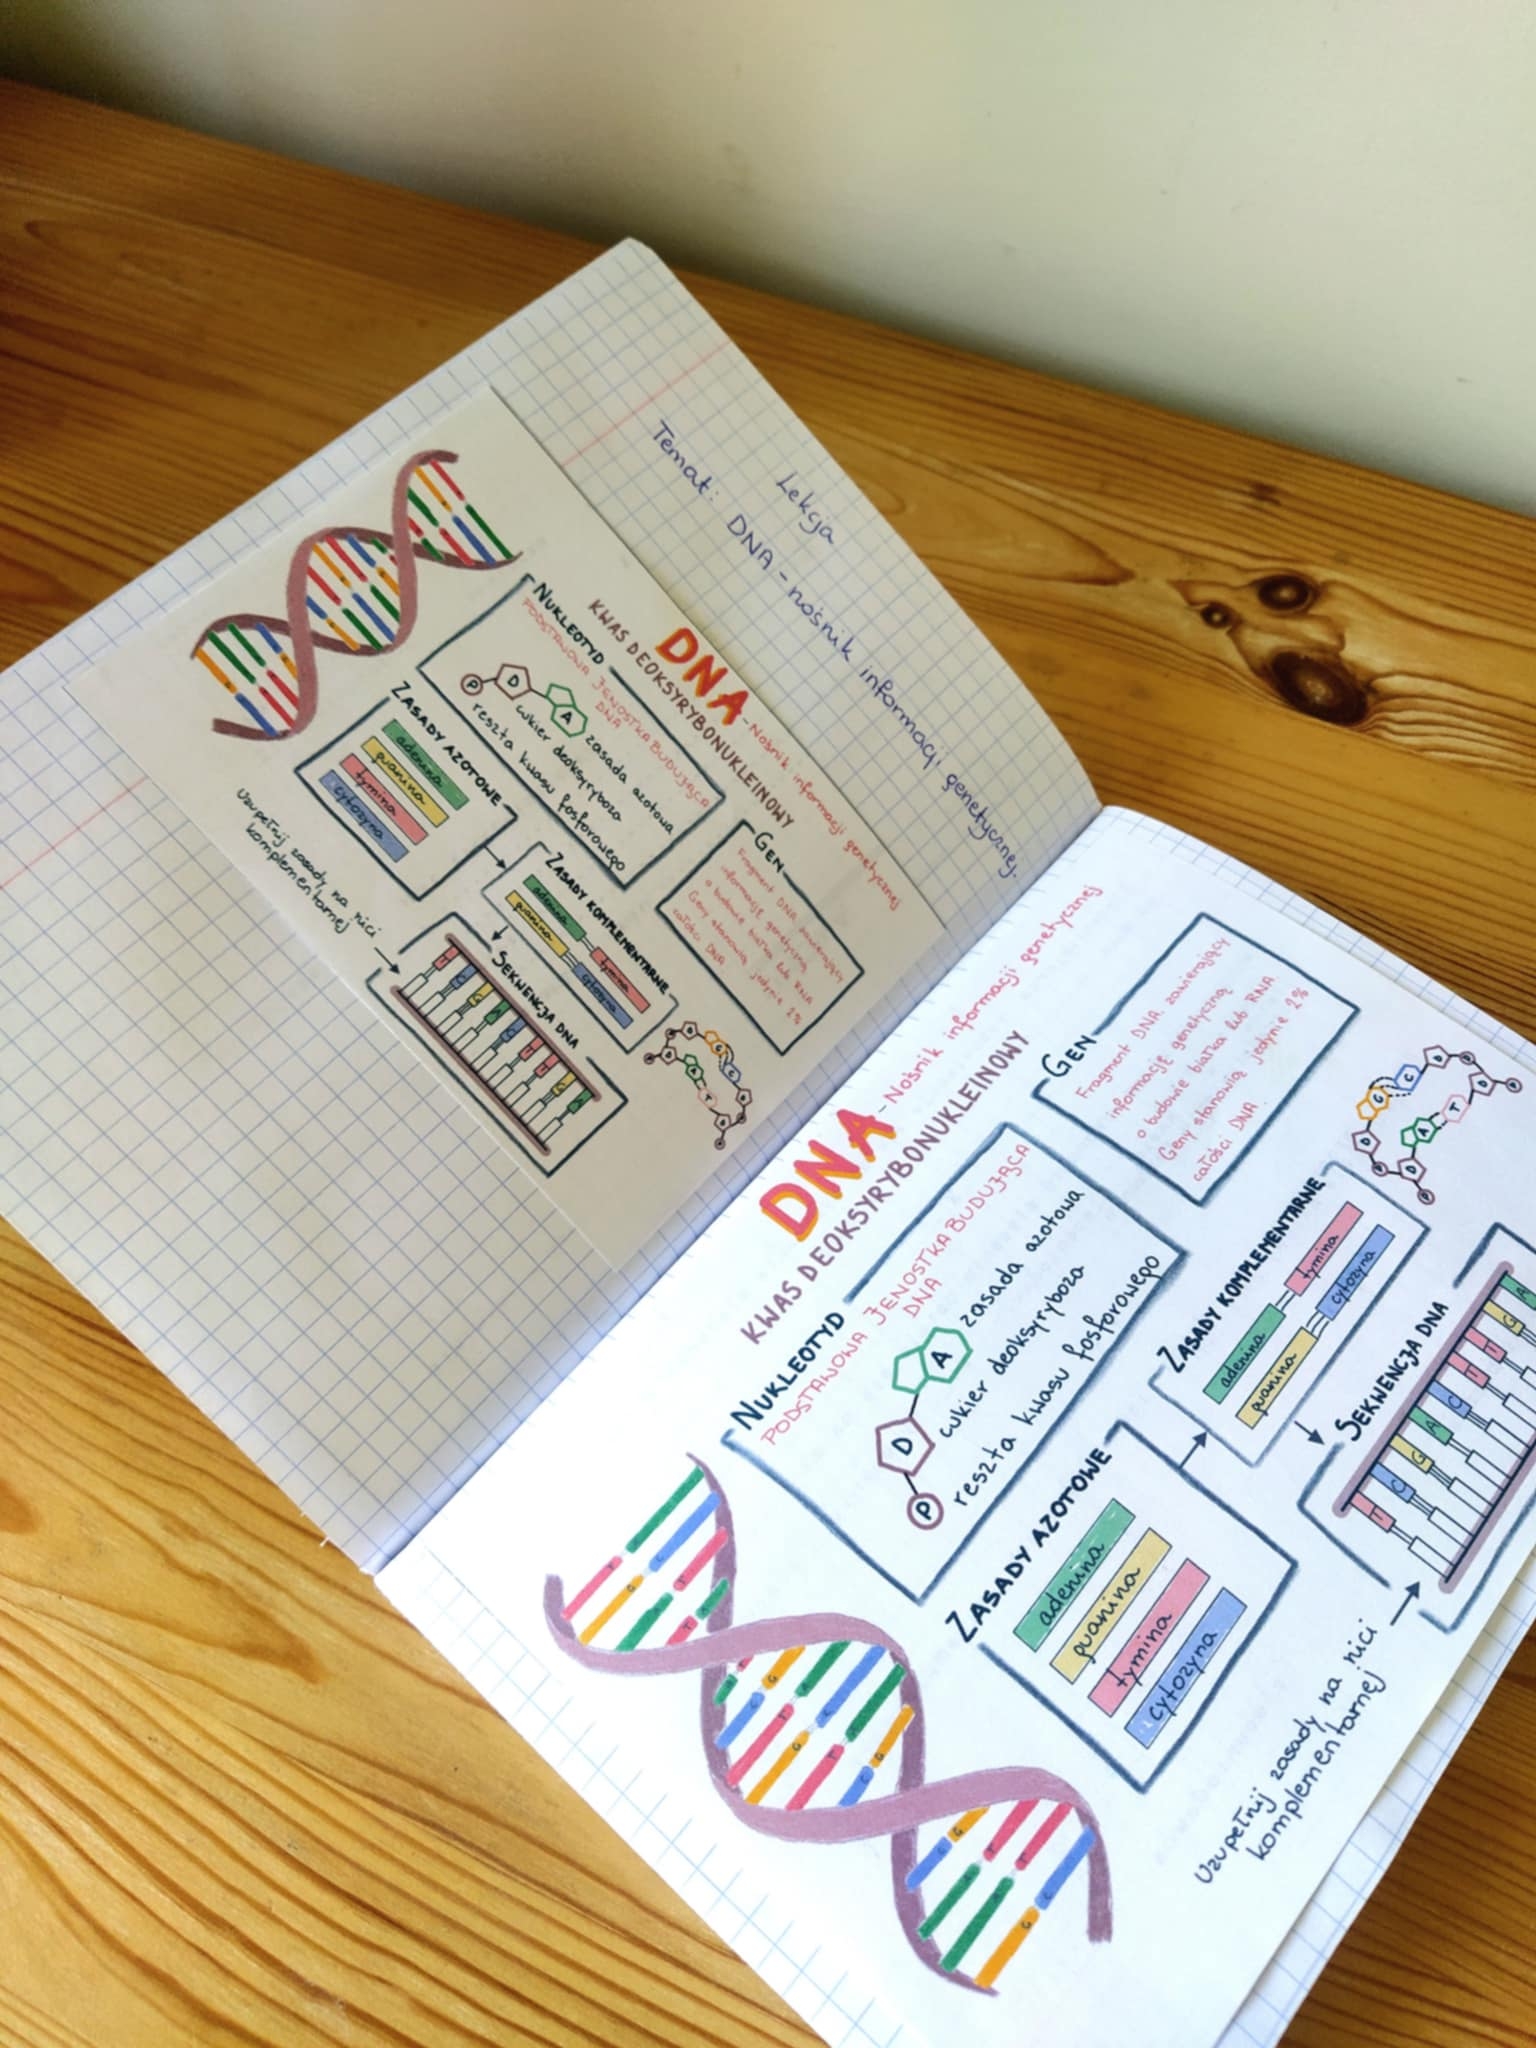 Lekcja
Temat: DNA - nośnik informacji genetycznej.
DNA - Nośnik informacji genetycznej
KWAS DEOKSYRYBONUKLEINOWY
NUKLEOTYD
PODSTAWOWA JENOSTKA BUDUJĄCA
DNA
P
D
A
zasada azotowa
cukier deoksyryboza
reszta kwasu fosforowego
GEN
Fragment DNA zawierający
informację genetyczną
o budowie białka lub RNA
Geny stanowią jedynie 2%
całości DNA
ZASADY AZOTOWE
adenina
guanina
tymina
cytozyna
ZASADY KOMPLEMENTARNE
adenina
tymina
guanina
cytozyna
SEKWENCJA DNA
T
C
G
A
C
T
T
G
A
Uzupełnij zasady na nici
komplementarnej
DNA - Nośnik informacji genetycznej
KWAS DEOKSYRYBONUKLEINOWY
NUKLEOTYD
PODSTAWOWA JENOSTKA BUDUJĄCA
DNA
A
D
P
zasada azotowa
cukier deoksyryboza
reszta kwasu fosforowego
GEN
Fragment DNA zawierający
informację genetyczną
o budowie białka lub RNA
Geny stanowią jedynie 2%
całości DNA
G
C
A
T
ZASADY AZOTOWE
adenina
guanina
tymina
cytozyna
ZASADY KOMPLEMENTARNE
adenina
tymina
guanina
cytozyna
SEKWENCJA DNA
T
C
G
A
C
T
T
G
A
Uzupełnij zasady na nici
komplementarnej